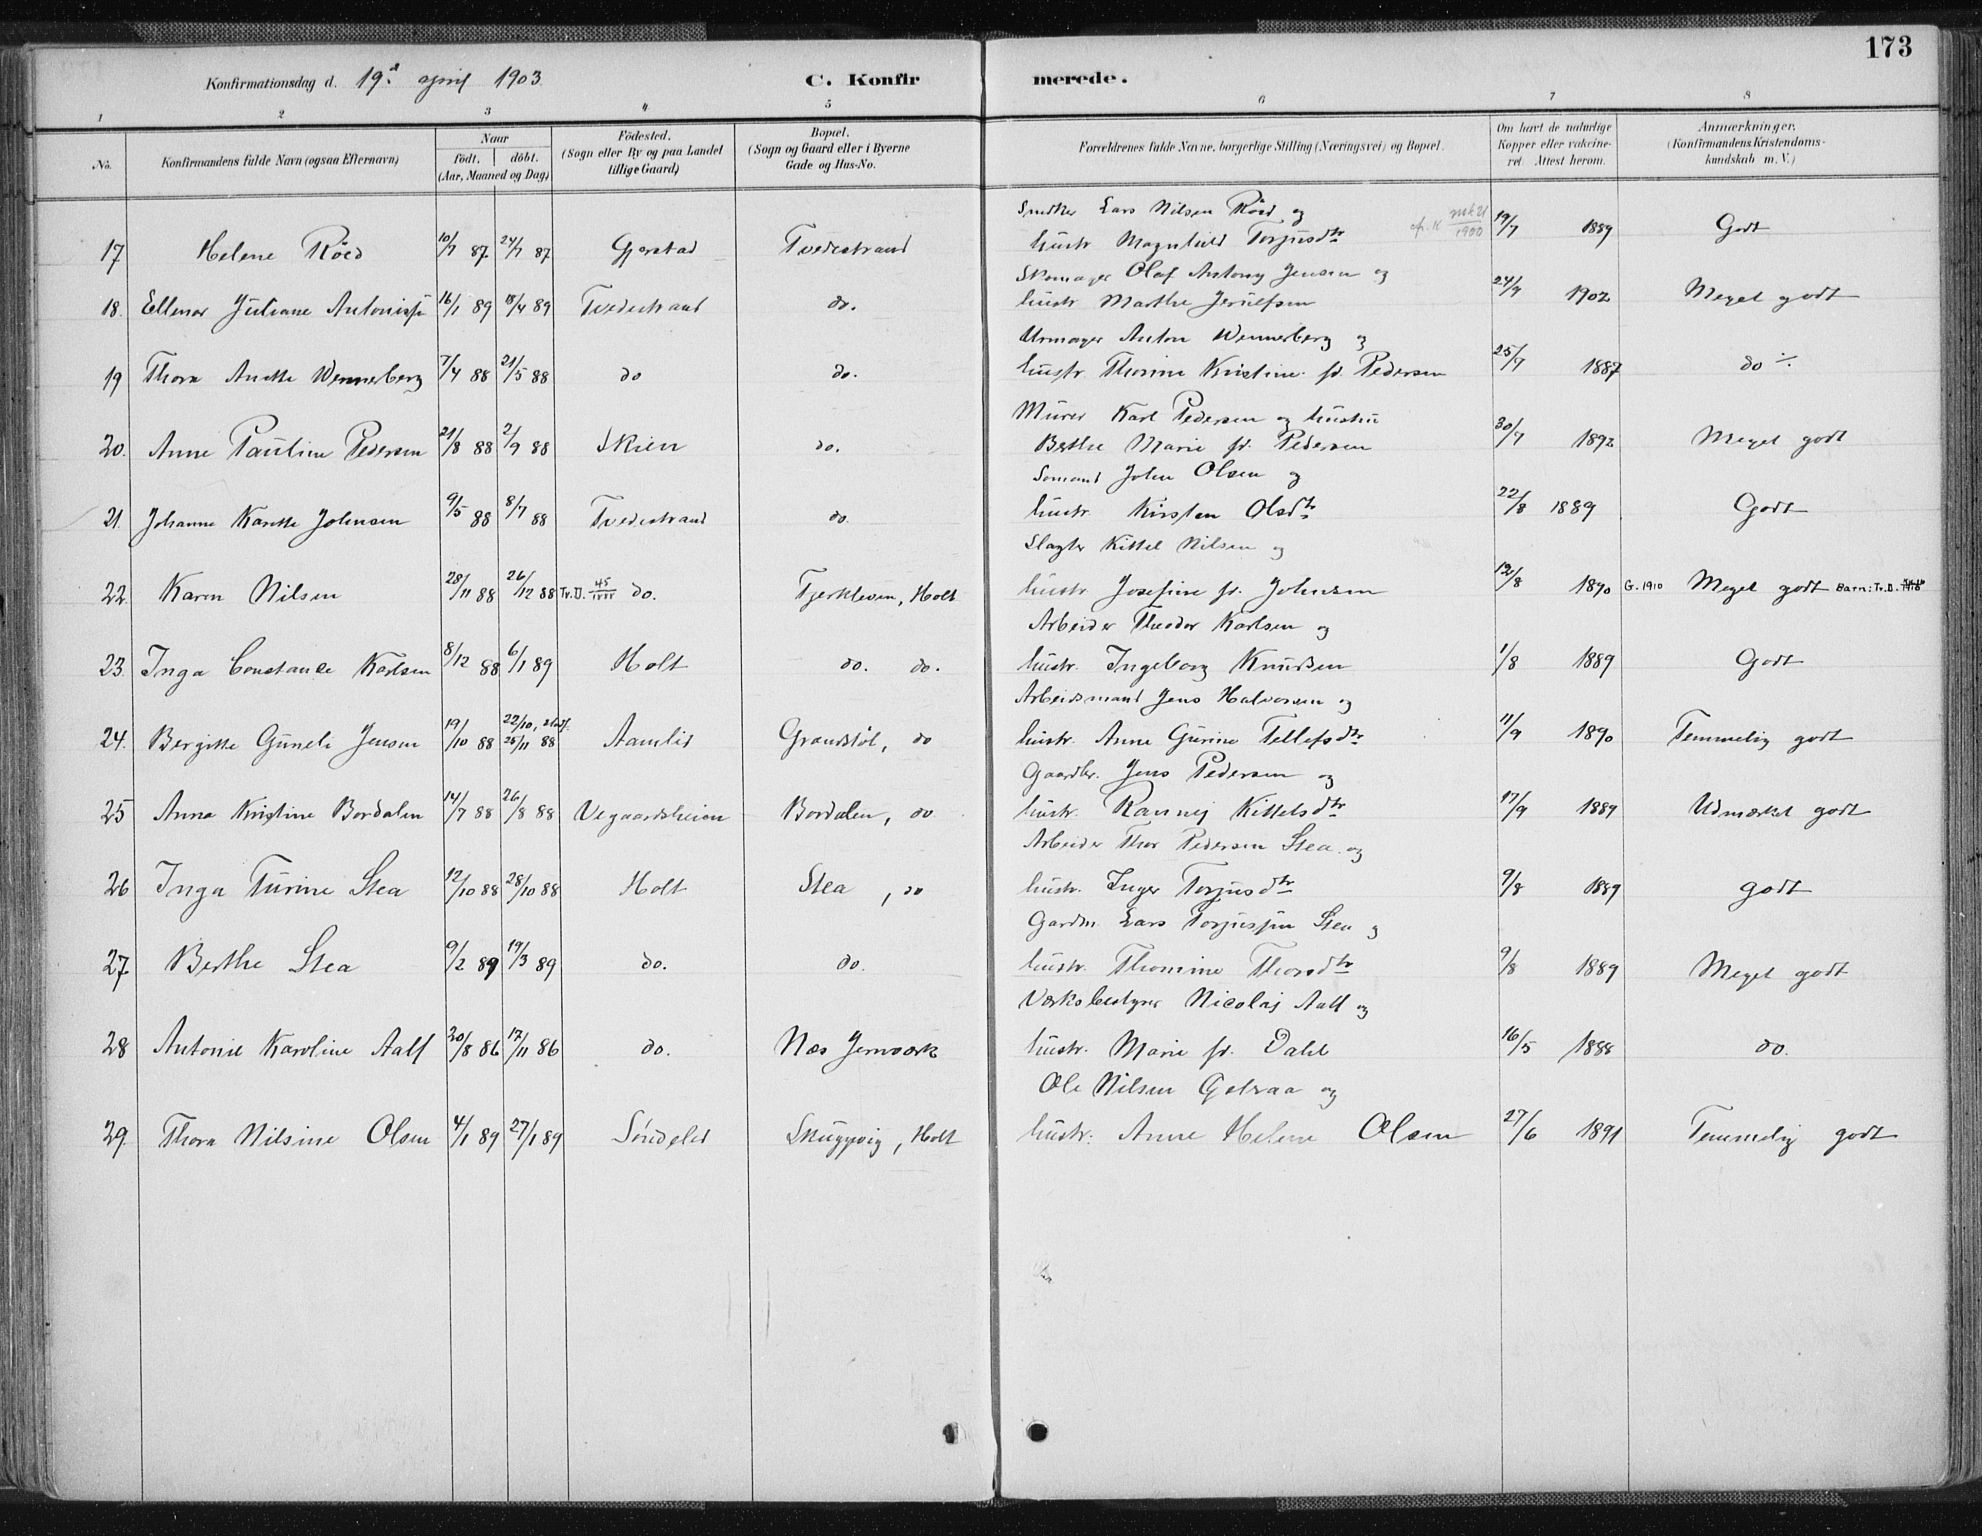 173
Konfirmationsdag d. 19. april 1903 C. Konfirmerede.
1 2 3 4 5 6 7 8
No. Konfirmandens fulde Navn (ogsaa Efternavn) Naar födt. döbt. (Aar, Maaned og Dag) Födested. (Sogn eller By og paa Landet tillige Gaard) Bopæl. (Sogn og Gaard eller i Byerne Gade og Hus-No. Forældrenes fulde Navne, borgerlige Stilling (Næringsvei) og Bopæl. Om havt de naturlige Kopper eller vakcineret. Attest herom. Anmærkninger. (Konfirmandens Kristendomskundskab m. V.)
Snedker Lars Nilsen Röed og
17 Helene Röed 10/7 87 24/7 87 Gjerstad Tvedestrand hustr. Magnhild Torjusdtr 19/7 1889 Godt
Skomager Olaf Antony Jensen og
18. Ellenor Juliane Antonisen 16/1 89 18/4 89 Tvedestrand do. hustr. Marthe Jerulfsen 24/7 1902 Meget godt
Urmager Anton Wennerberg og
19 Thora Anette Wennerberg 7/4 88 21/5 88 do do. hustr. Thorine Kristine f. Pedersen 25/7 1887 do
Murer Karl Pedersen og hustru
20. Anne Pauline Pedersen 21/8 88 2/9 88 Skien do. Berthe Marie f. Pedersen 30/7 1892 Meget godt
Sømand John Olsen og
21. Johanne Karette Johnsen 9/5 88 8/7 88 Tvedestrand do. hustr. Kirsten Olsdtr 22/8 1889 Godt
Slagter Kittel Nilsen og
22. Karen Nilsen 28/11 88 26/12 88 Tv.D. 45/1888 do. Fjerkleven, Holt hustr. Josefine f. Johnsen 12/8 1890 G. 1910 Meget godt Barn: Tv.D.
Arbeider Theodor Karlsen og
23. Inga Constance Karlsen 8/12 88 6/1 89 Holt do. do. hustr. Ingeborg Knudsen 1/8 1889 Godt
Arbeidsmand Jens Halvorsen og
24. Bergitte Gunele Jensen 19/10 88 22/10, 25/11 88 Aamlid Grandstöl, do hustr. Anne Gurine Tellefsdtr 11/9 1890 Temmelig godt
Gaardbr. Jens Pedersen og
25 Anna Kristine Bordalen 14/7 88 26/8 88 Vegaardsheien Bordalen, do hustr. Rannej Kittelsdtr 17/9 1889 Udmærket godt
Arbeider Thor Pedersen Stea og
26 Inga Turine Stea 12/10 88 28/10 88 Holt Stea, do hustr. Inger Torjusdtr 9/8 1889 godt
Gardm. Lars Torjussen Stea og
27 Berthe Stea 9/2 89 19/3 89 do. do. hustr. Thomine Thorsdtr 9/8 1889 Meget godt
Værksbestyrer Nicolaj Aall og
28 Antonie Karoline Aall 20/8 86 17/11 86 do. Næs Jernværk hustr. Marie f. Dahl 16/5 1888 do.
Ole Nilsen Gjelraa og
29. Thora Nilsine Olsen 4/1 89 27/1 89 Söndeled Skuggevig, Holt hustr. Anne Helene Olsen 27/6 1891 Temmelig godt